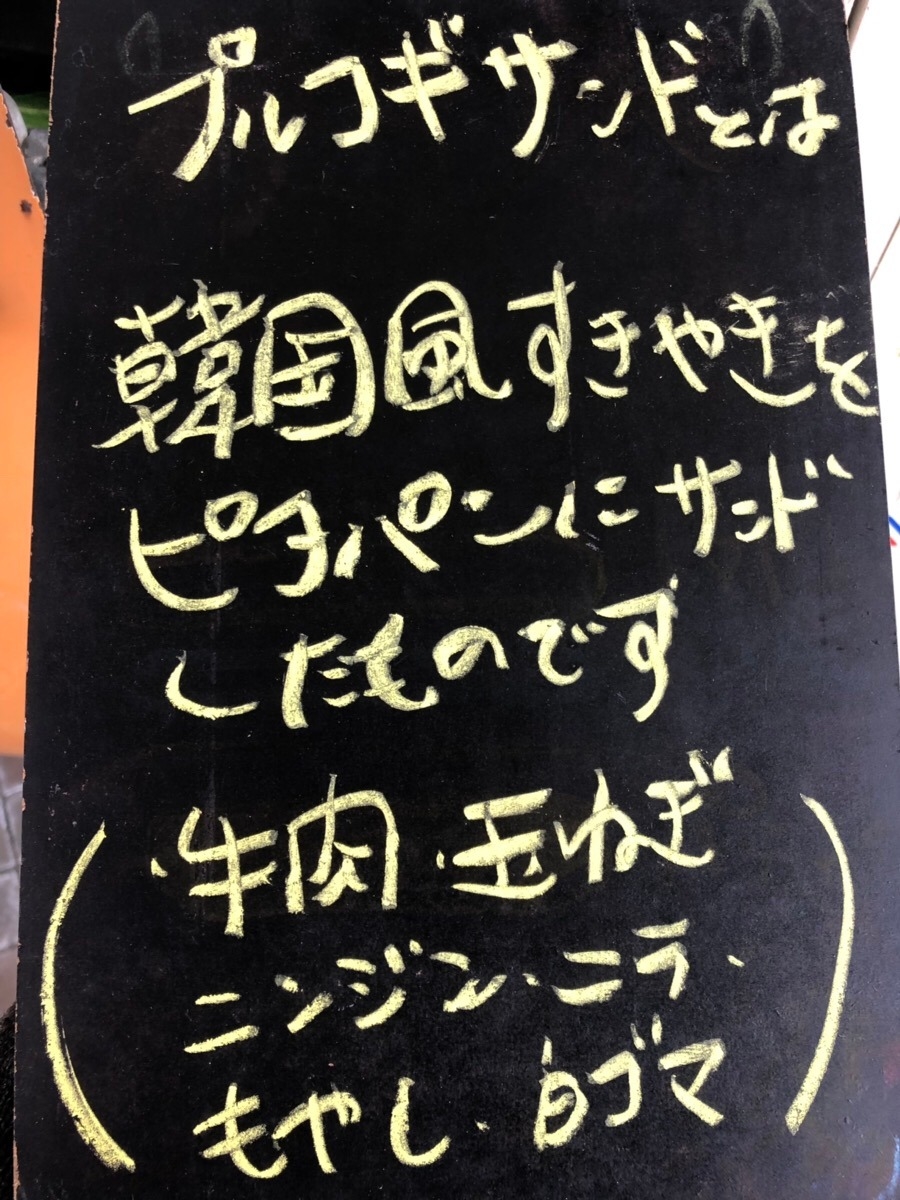 プルコギサンドとは
韓国風すきやきを
ピタパンにサンド
したものです
(・牛肉・玉ねぎ
ニンジン・ニラ・
もやし・白ゴマ)